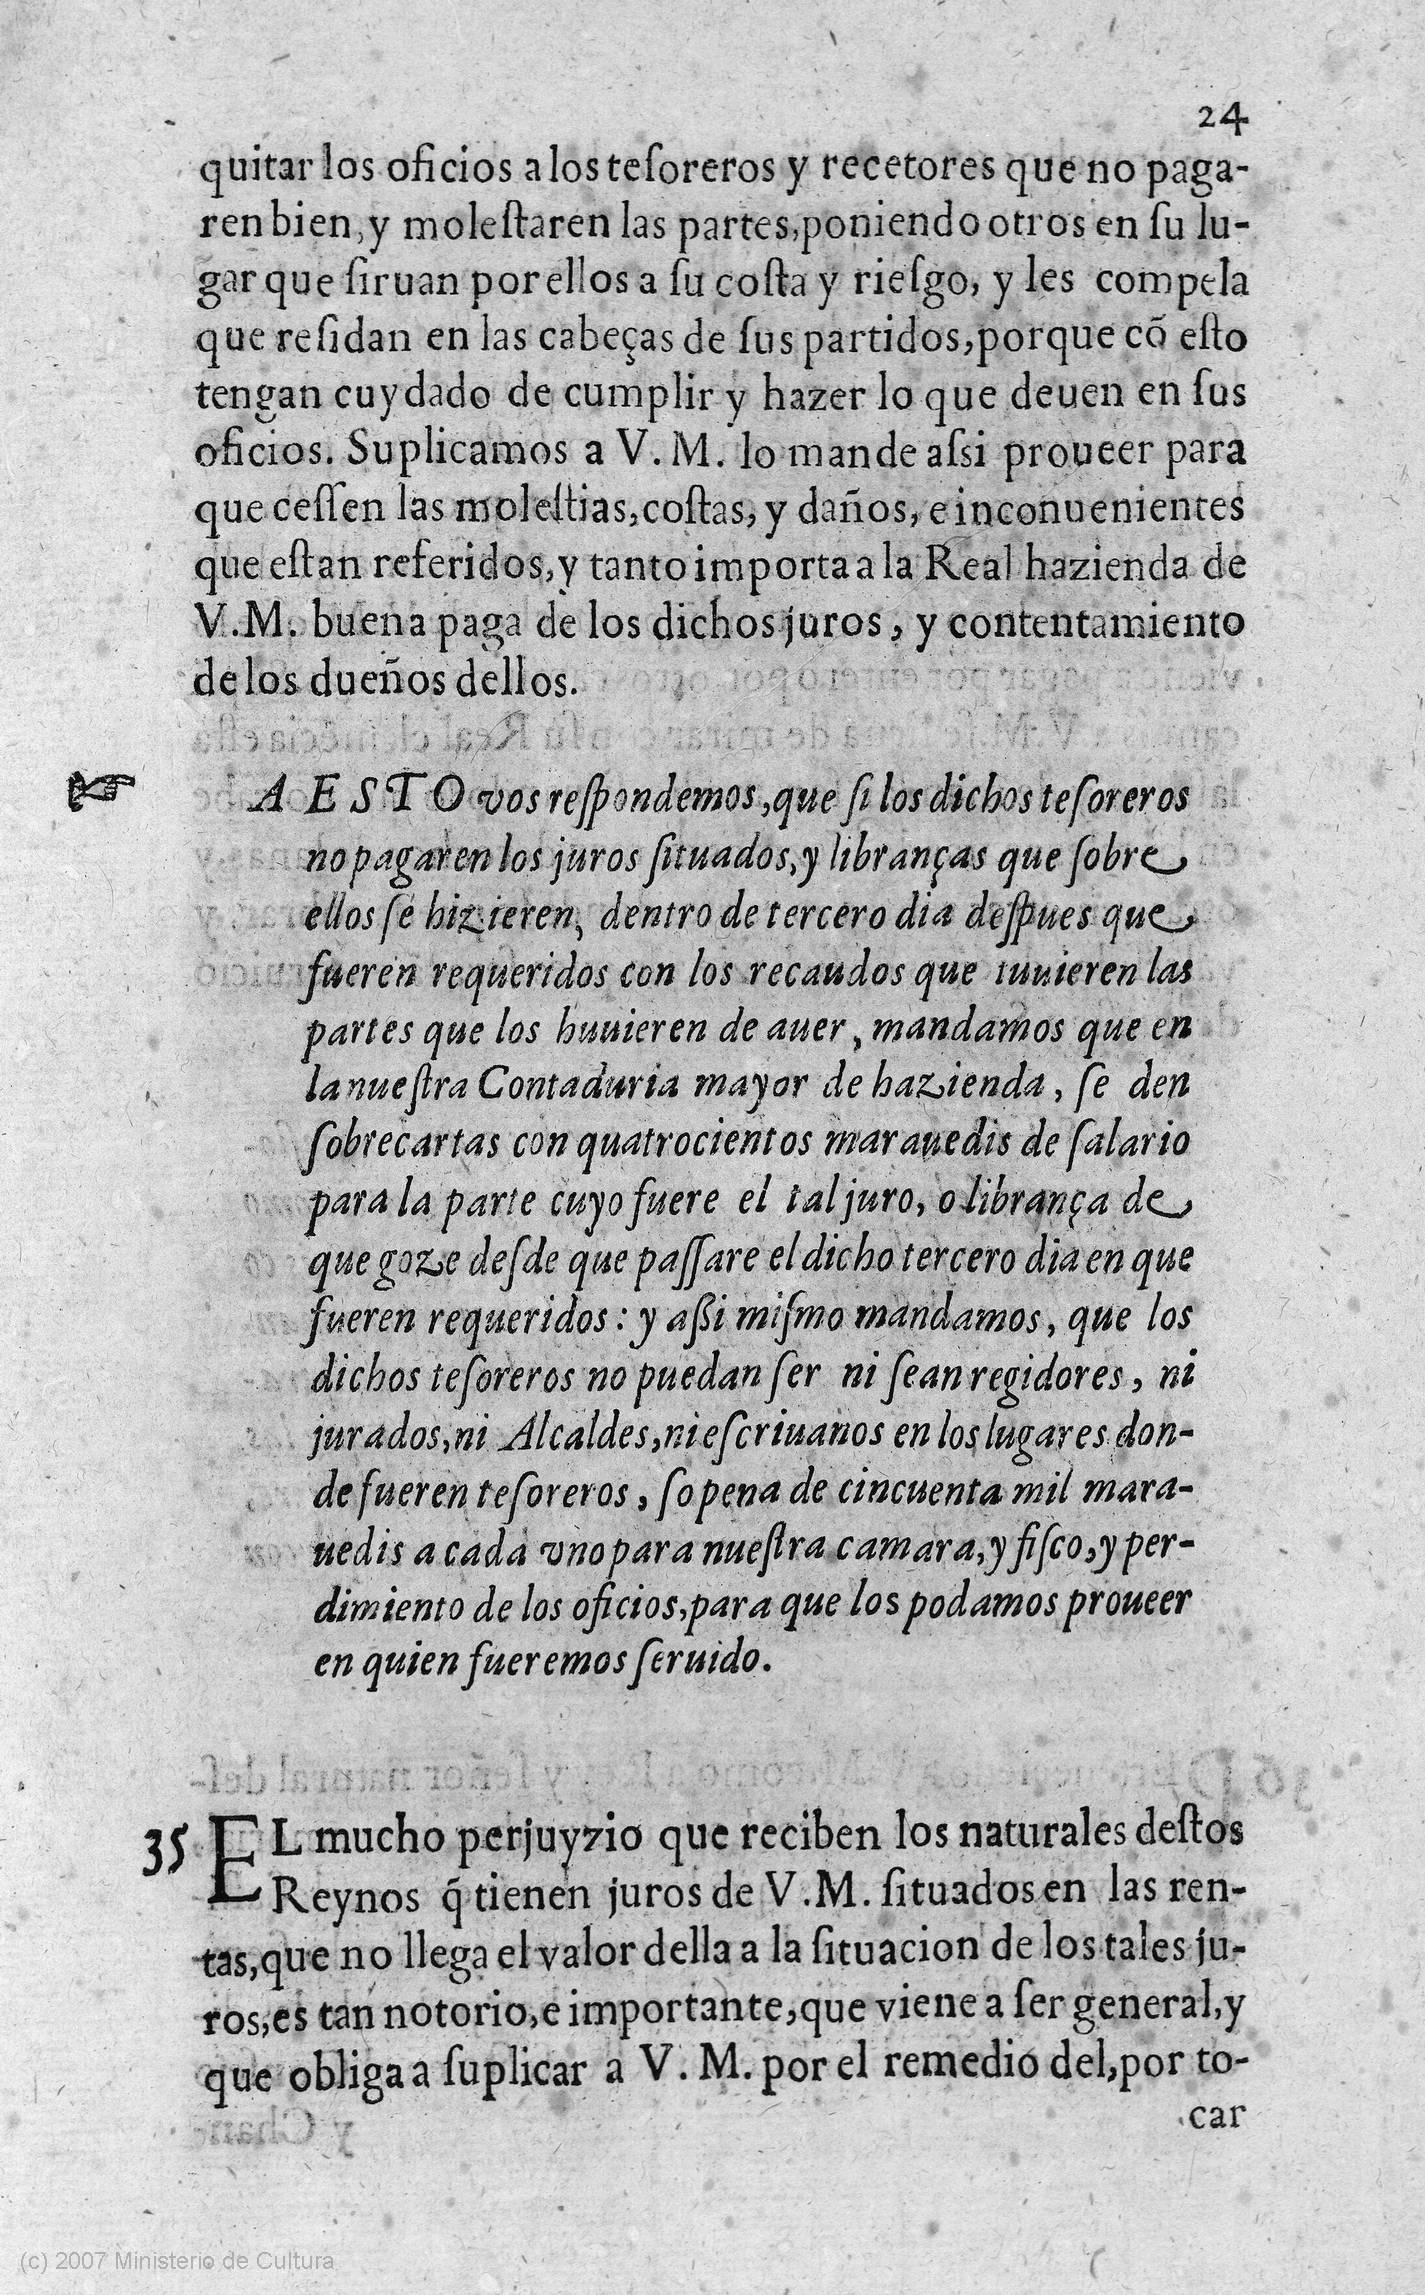 24
quitar los oficios a los teſoreros y recetores que no paga-
ren bien, y moleſtaren las partes, poniendo otros en ſu lu-
gar que ſiruan por ellos a ſu coſta y rieſgo, y les compela
que reſidan en las cabeças de ſus partidos, porque cõ eſto
tengan cuydado de cumplir y hazer lo que deuen en ſus
oficios. Suplicamos a V. M. lo mande aſsi proueer para
que ceſſen las moleſtias, coſtas, y daños, e inconuenientes
que eſtan referidos, y tanto importa a la Real hazienda de
V.M. buena paga de los dichos juros, y contentamiento
de los dueños dellos.
A ESTO vos reſpondemos, que ſi los dichos teſoreros
no pagaren los juros ſituados, y libranças que ſobre
ellos ſe hizieren, dentro de tercero dia deſpues que
fueren requeridos con los recaudos que tuuieren las
partes que los huuieren de auer, mandamos que en
la nueſtra Contaduria mayor de hazienda, ſe den
ſobrecartas con quatrocientos marauedis de ſalario
para la parte cuyo fuere el tal juro, o librança de
que goze deſde que paſſare el dicho tercero dia en que
fueren requeridos: y aſsi miſmo mandamos, que los
dichos teſoreros no puedan ſer ni ſean regidores, ni
jurados, ni Alcaldes, ni eſcriuanos en los lugares don-
de fueren teſoreros, ſo pena de cincuenta mil mara-
uedis a cada vno para nueſtra camara, y fiſco, y per-
dimiento de los oficios, para que los podamos proueer
en quien fueremos ſeruido.
35 EL mucho perjuyzio que reciben los naturales deſtos
Reynos q̃ tienen juros de V.M. ſituados en las ren-
tas, que no llega el valor della a la ſituacion de los tales ju-
ros, es tan notorio, e importante, que viene a ſer general, y
que obliga a ſuplicar a V. M. por el remedio del, por to-
car
(c) 2007 Ministerio de Cultura